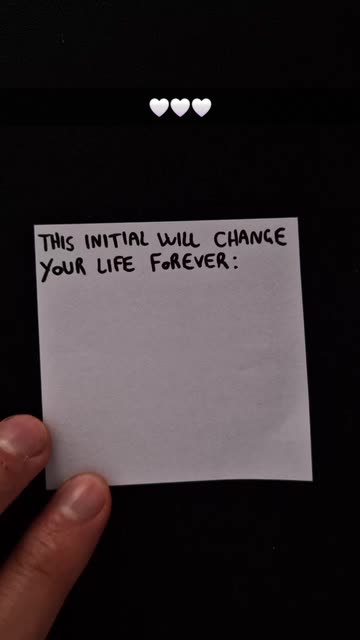 🤍🤍🤍
THIS INITIAL WILL CHANGE
YOUR LIFE FOREVER: